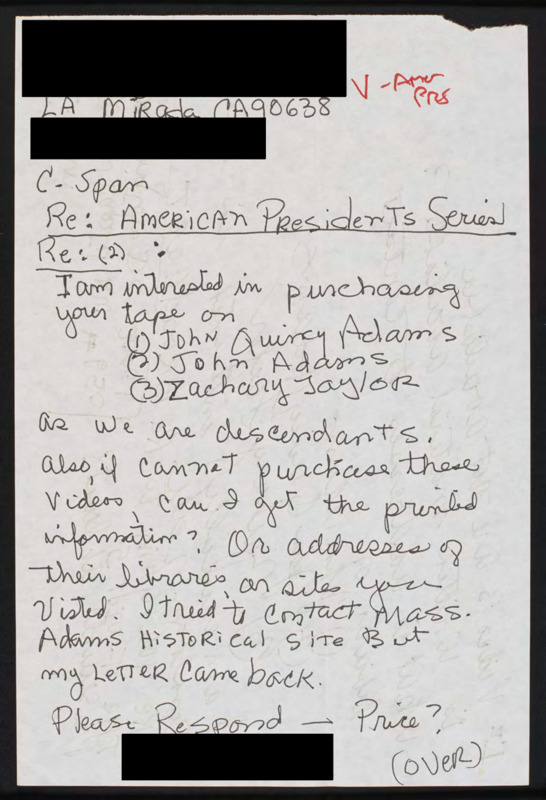 LA MiRada CA 90638
V - Amer
PRS
C-Span
Re: AMERICAN PResidenTs Series
Re: (2) :
I am interested in purchasing
your tape on
(1) JOHN Quincy Adams
(2) John Adams
(3) Zachary TaylOR
as we are descendants.
Also, if cannot purchase these
Videos, can I get the printed
information? Or addresses of
their libraries, or sites you
Visted. I tried to Contact Mass.
Adams HISTORICal SITE But
my LETTER Came back.
Please Respond — Price?
(OVER)